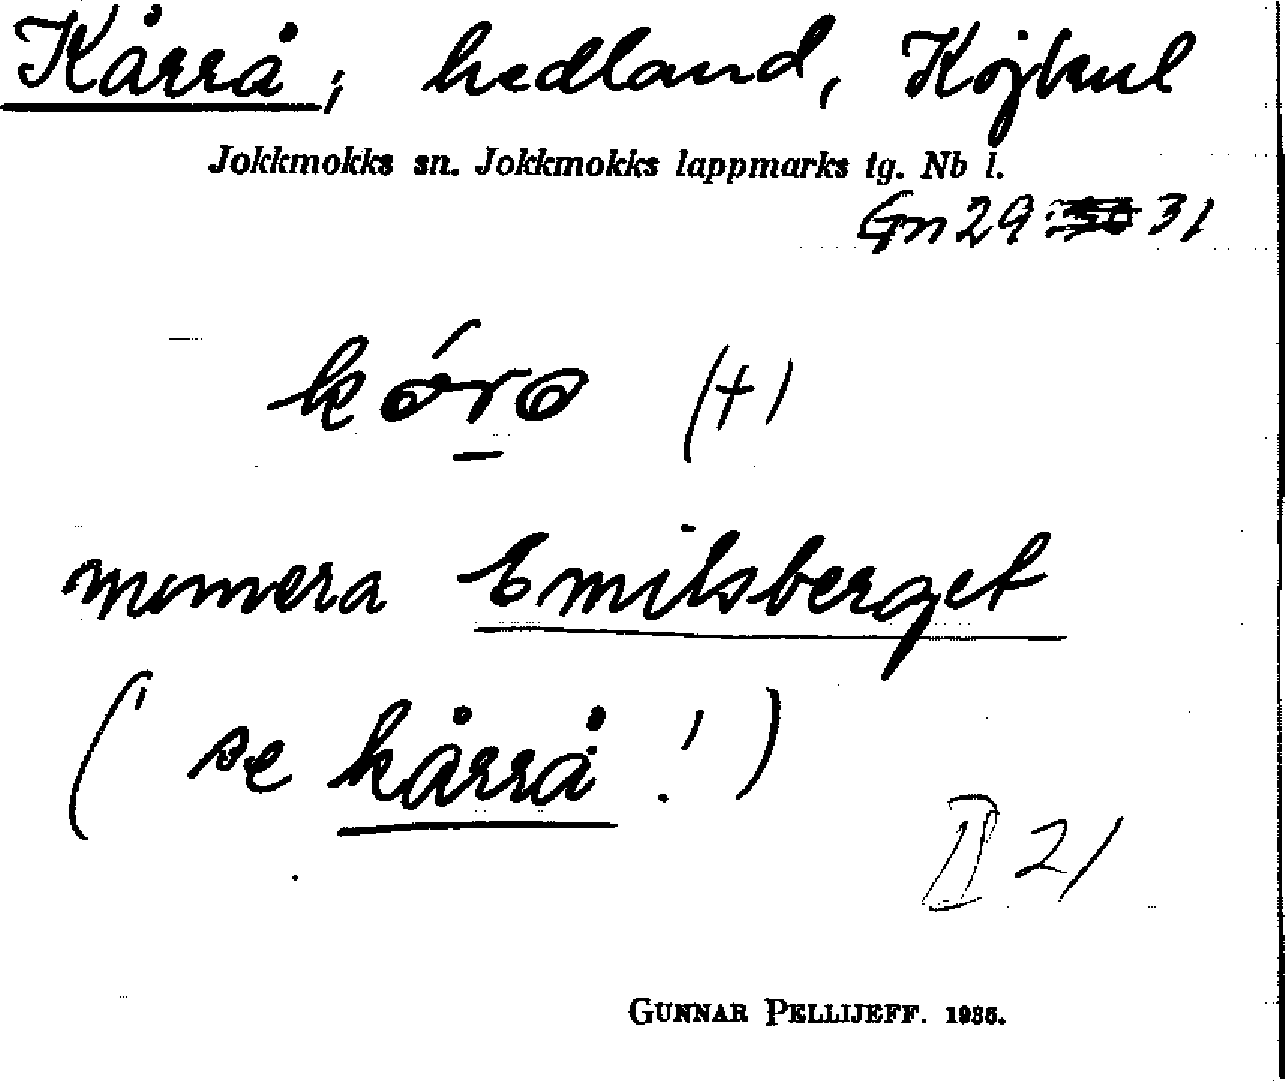 Kårrå; hedland, Kojkul
Jokkmokks sn. Jokkmokks lappmarks tg. Nb l.
Gn 29 31
kóro (+)
numera Emilsberget
(se kårrå!)
II 21
GUNNAR PELLIJEFF. 1935.